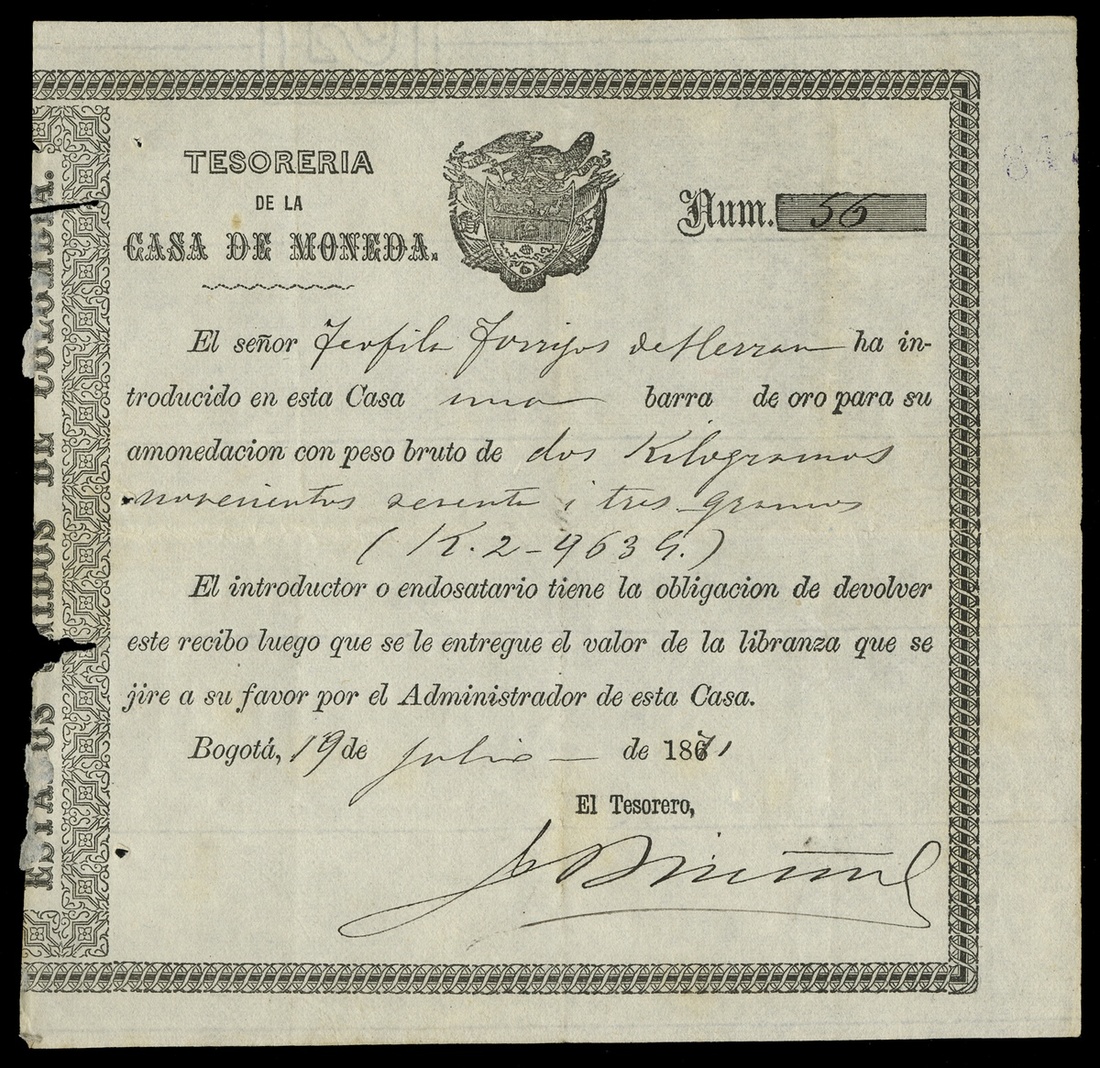 ESTADOS UNIDOS DE COLOMBIA.
TESORERIA
DE LA
CASA DE MONEDA.
Num. 56
El señor Teofila Torrijos de Herran ha in-
troducido en esta Casa una barra de oro para su
amonedacion con peso bruto de dos Kilogramos
novecientos sesenta i tres gramos
(K. 2-963 G.)
El introductor o endosatario tiene la obligacion de devolver
este recibo luego que se le entregue el valor de la libranza que se
jire a su favor por el Administrador de esta Casa.
Bogotá, 19 de julio — de 1871
El Tesorero,